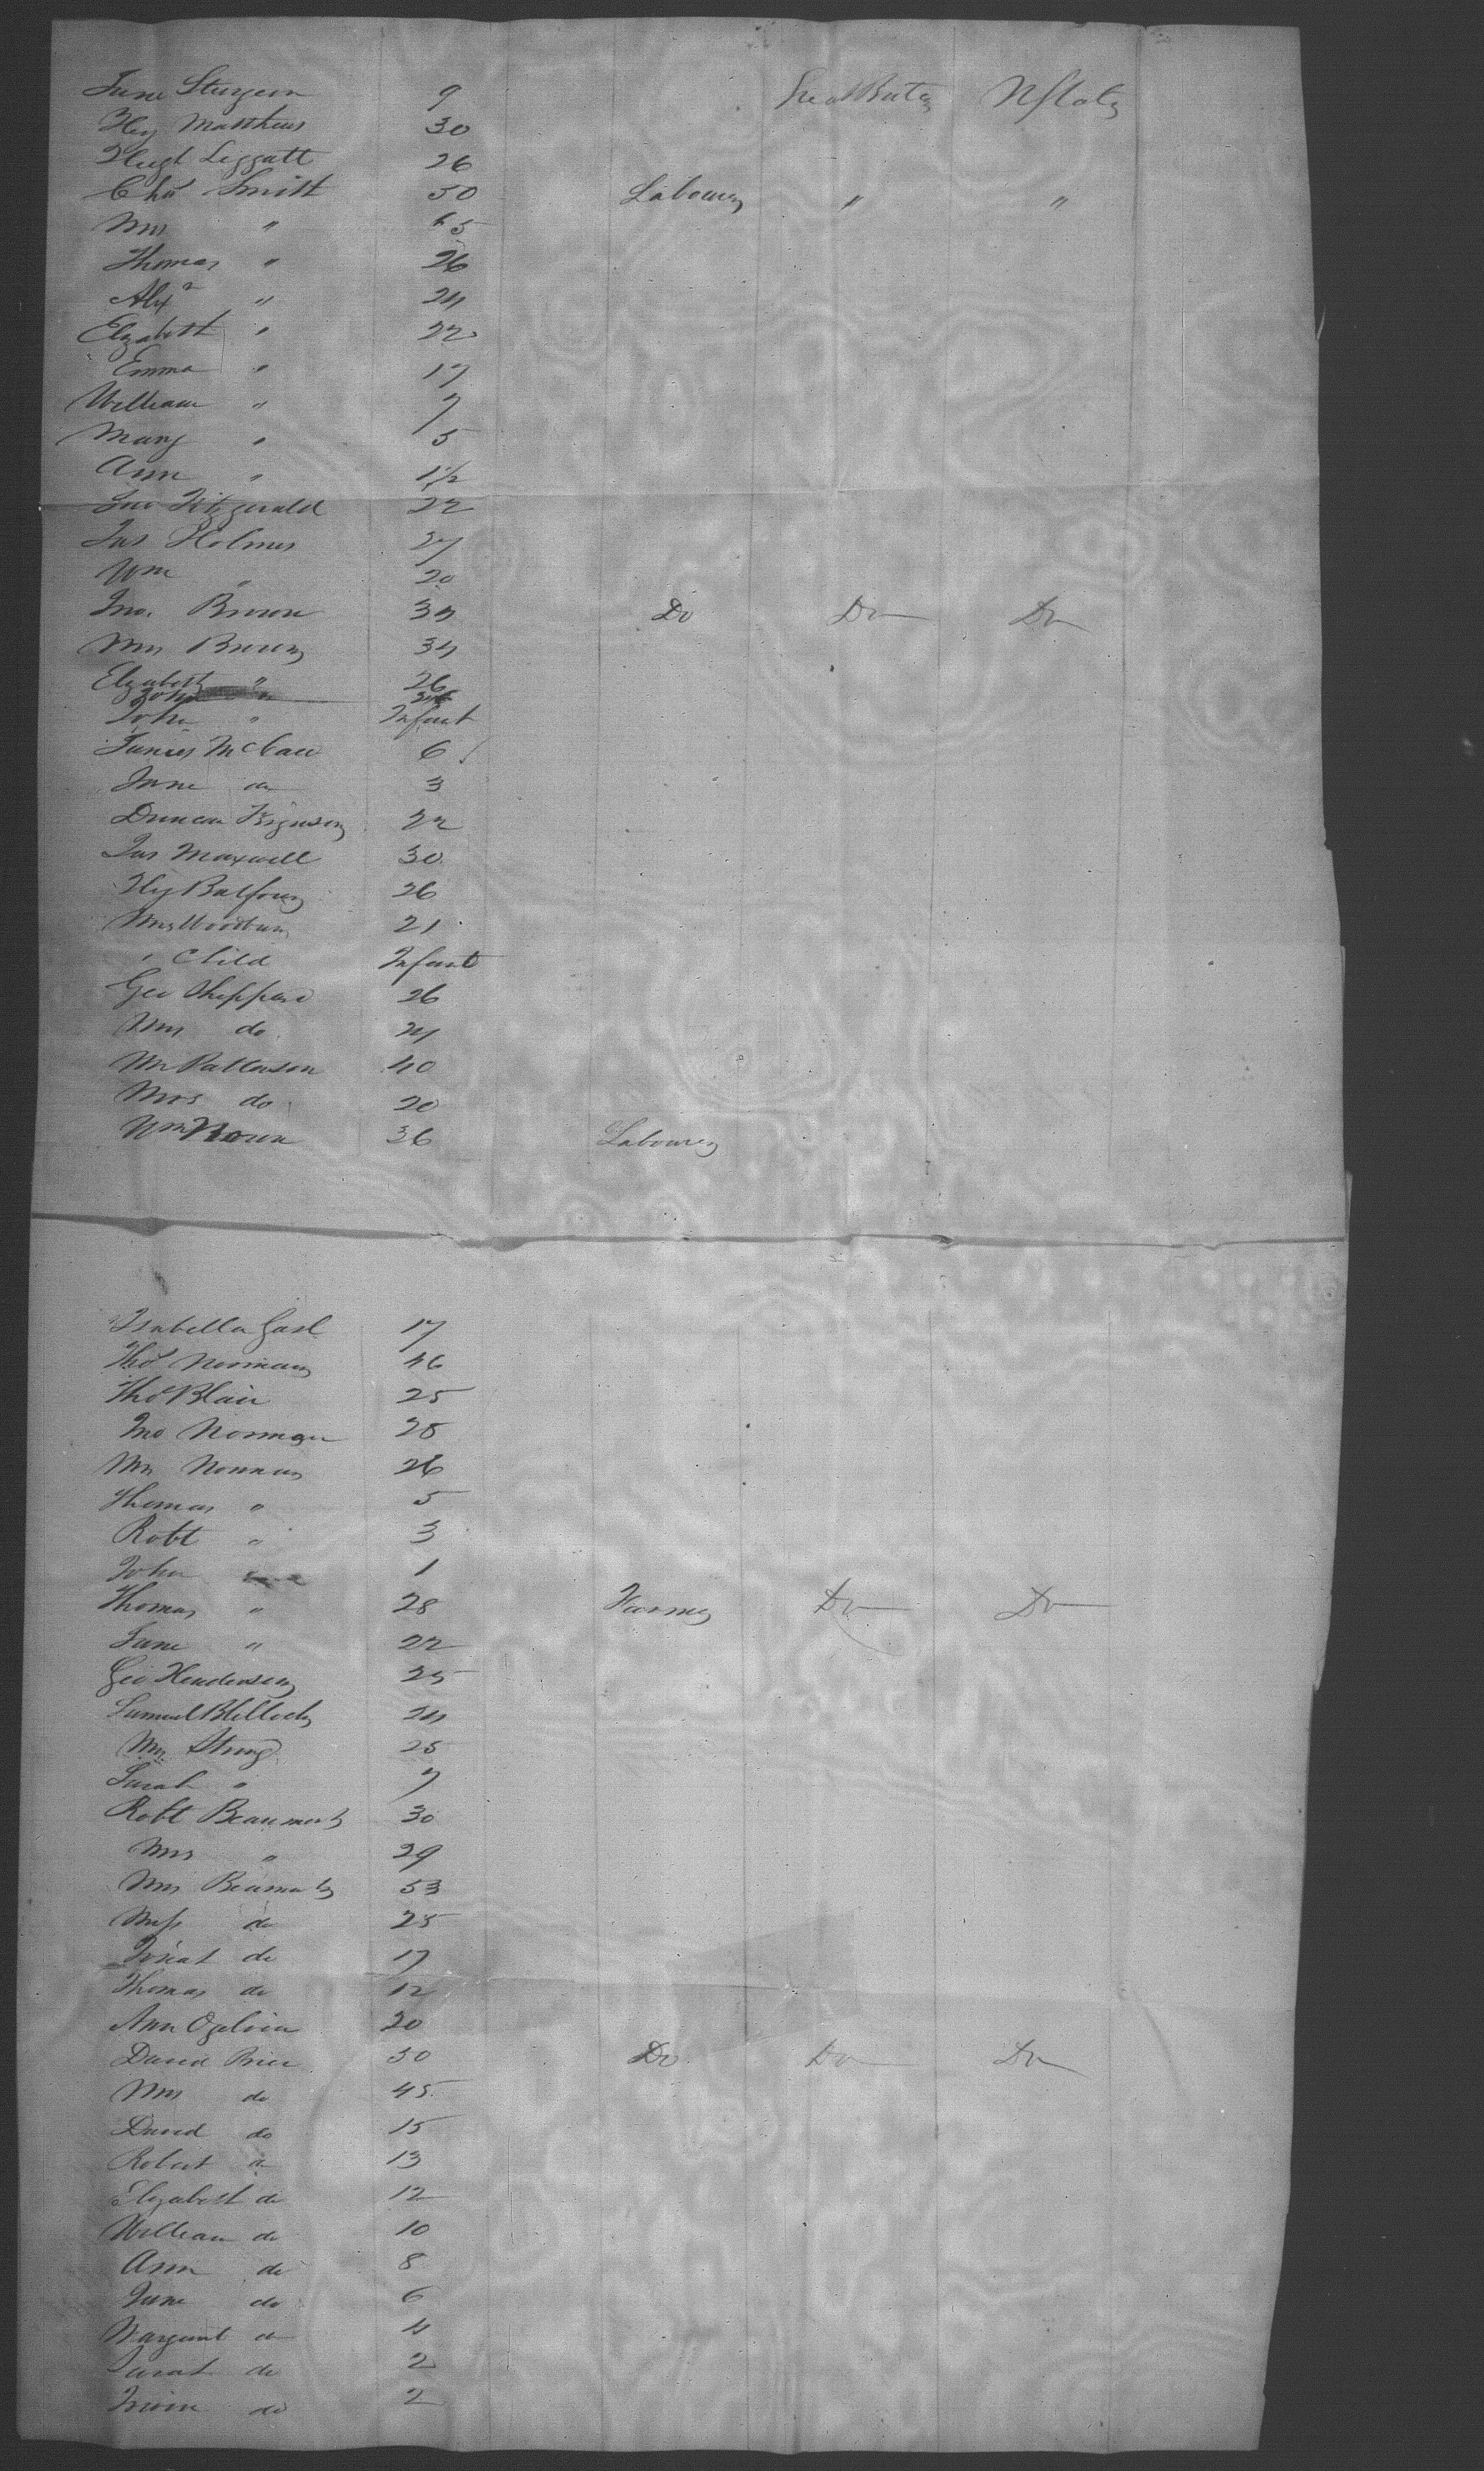 Jane Sturgeon 9 Great Britn N States
Hy Matthews 30
Hugh Leggatt 26
Chas Smith 50 Labourer " "
Mrs " 45
Thomas " 26
Alexr " 24
Elizabeth " 22
Emma " 17
William " 7
Mary " 5
Ann " 1 1/2
Jno Fitzgerald 22
Jas Holmes 27
Wm " 20
Jno. Brown 34 Do Do Do
Mrs Brown 34
Elizabeth " 26
John "
John " Infant
James McCaw 6
Jane do 3
Duncan Ferguson 22
Jas Maxwell 30
Hy Balfour 26
Mrs Woodburn 21
" Child Infant
Geo Sheppard 26
Mrs do 24
Mr Patterson 40
Mrs do 20
Wm Brown 36 Labourer
Isabella 17
Thos Norman 46
Thos Blair 25
Jno Norman 28
Mrs Norman 26
Thomas " 5
Robt " 3
John 1
Thomas " 28 Farmer Do Do
Jane " 22
Geo Henderson 25
Samuel 24
Mrs Strong 25
Sarah " 7
Robt Beaumont 30
Mrs " 29
Mrs Beaumont 53
Miss do 25
do 17
Thomas do 12
Ann Ogilvie 20
David Price 50 Do Do Do
Mrs do 45
David do 15
Robert do 13
Elizabeth do 12
William do 10
Ann do 8
Jane do 6
Margaret do 4
Sarah do 2
do 2